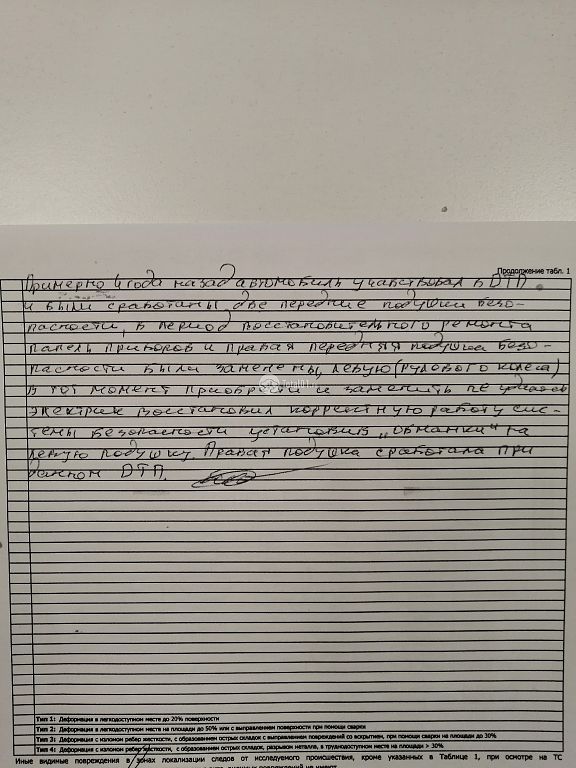 Продолжение табл. 1
Примерно 4 года назад автомобиль участвовал в ДТП
и были сработаны две передние подушки безо-
пасности, в период восстановительного ремонта
панель приборов и правая передняя подушка безо-
пасности были заменены, левую (рулевого колеса)
в тот момент приобрести и заменить не удалось
электрик восстановил корректную работу сис-
темы безопасности установив „обманки" на
левую подушку. Правая подушка сработала при
данном ДТП.
Тип 1: Деформация в легкодоступном месте до 20% поверхности
Тип 2: Деформация в легкодоступном месте на площади до 50% или с выправлением поверхности при помощи сварки
Тип 3: Деформация с изломом ребер жесткости, с образованием острых складок с выправлением повреждений со вскрытием, при помощи сварки на площади до 30%
Тип 4: Деформация с изломом ребер жесткости, с образованием острых складок, разрывом металла, в труднодоступном месте на площади > 30%
Иные видимые повреждения в зонах локализации следов от исследуемого происшествия, кроме указанных в Таблице 1, при осмотре на ТС